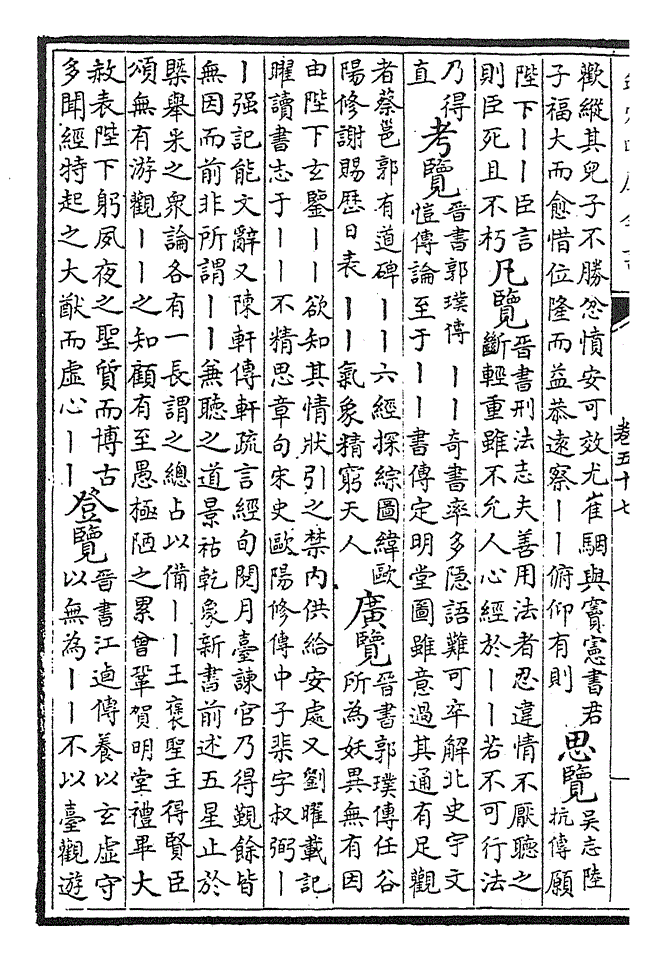 卷五十七
歡縱其兒子不勝忿憤安可效尤崔駰與竇憲書君
子福大而愈惜位隆而益恭遠察丨丨俯仰有則
思覽
吳志陸
抗傳願
陛下丨丨臣言
則臣死且不朽
凡覽
晉書刑法志夫善用法者忍違情不厭聽之
斷輕重雖不允人心經於丨丨若不可行法
乃得
直
考覽
晉書郭璞傳丨丨奇書率多隱語難可卒解北史宇文
愷傳論至于丨丨書傳定明堂圖雖意過其通有足觀
者蔡邕郭有道碑丨丨六經探綜圖緯歐
陽修謝賜歷日表丨丨氣象精窮天人
廣覽
晉書郭璞傳任谷
所為妖異無有因
由陛下玄鑒丨丨欲知其情狀引之禁内供給安處又劉曜載記
曜讀書志于丨丨不精思章句宋史歐陽修傳中子棐字叔弼丨
丨强記能文辭又陳軒傳軒疏言經旬閱月臺諫官乃得覲餘皆
無因而前非所謂丨丨兼聽之道景祐乾象新書前述五星止於
槩舉采之衆論各有一長謂之總占以備丨丨王襃聖主得賢臣
頌無有游觀丨丨之知顧有至愚極陋之累曾鞏賀明堂禮畢大
赦表陛下躬夙夜之聖質而博古
多聞經特起之大猷而虛心丨丨
登覽
晉書江逌傳養以玄虛守
以無為丨丨不以臺觀遊